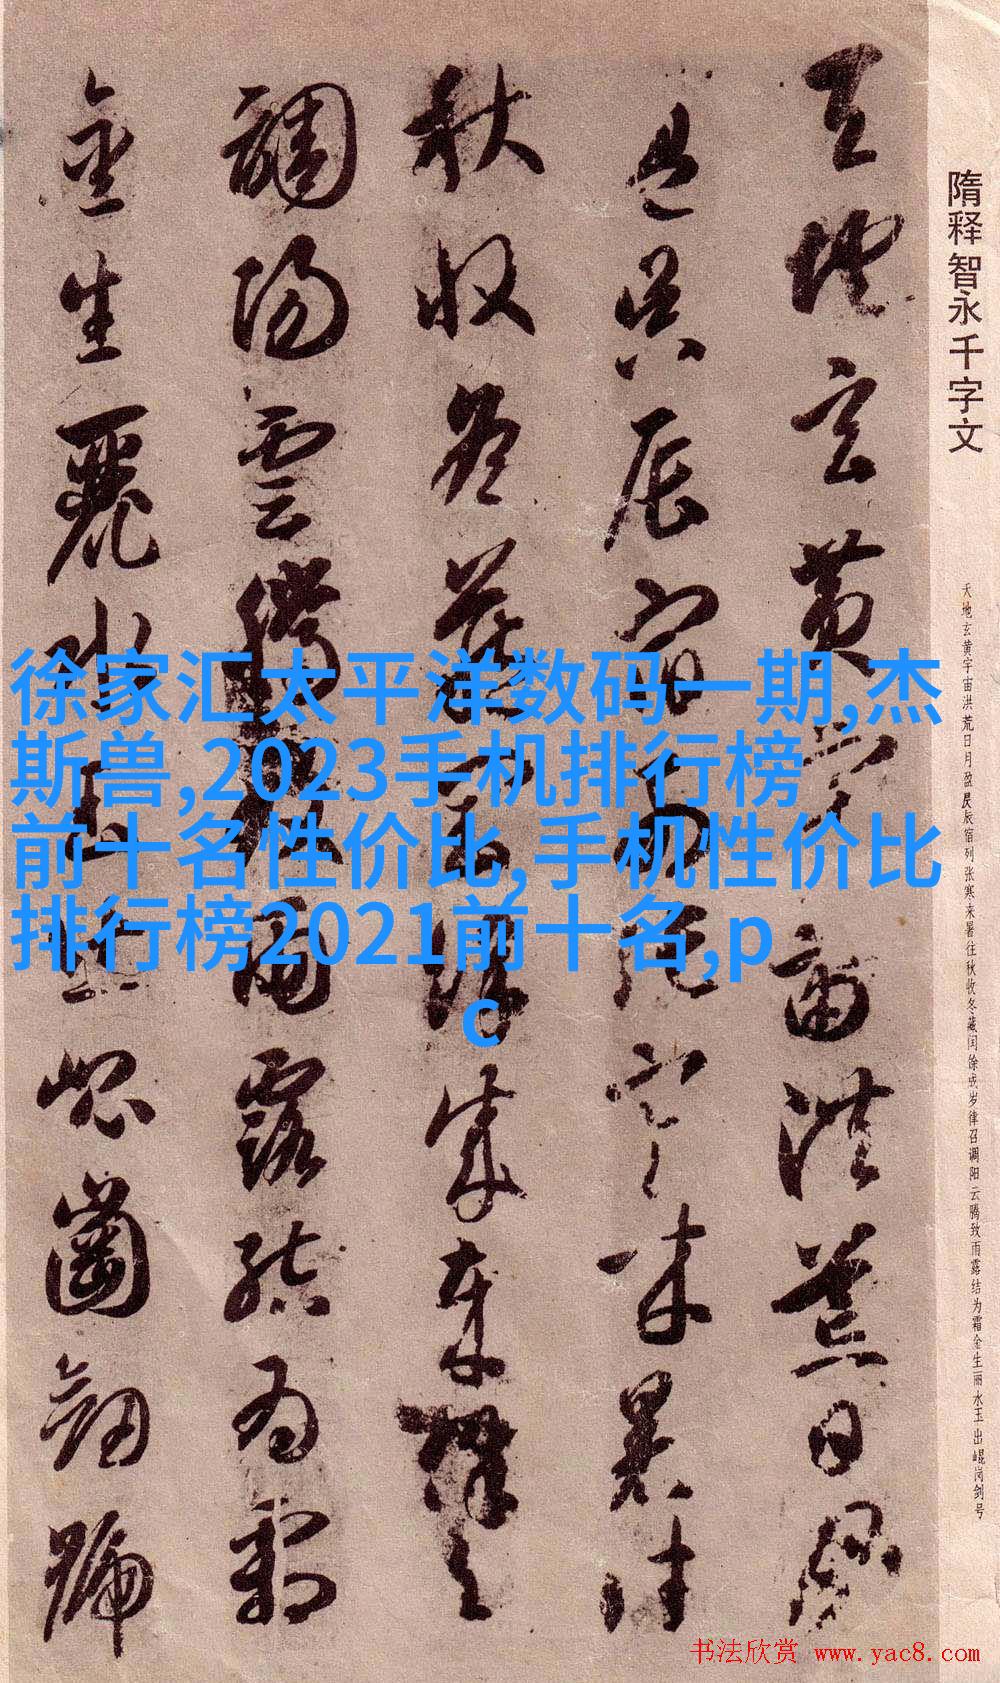 天地玄黄宇宙洪荒日月
盈昃辰宿列張寒来暑往
秋收冬藏閏餘成歲律召
調陽雲騰致雨露結為霜
金生麗水玉出崐崗劍號
隋释智永千字文
天地玄黄宇宙洪荒日月盈昃辰宿列张寒来暑往秋收冬藏闰馀成岁律召调阳云腾致雨露结为霜金生丽水玉出崐岗剑号
徐家汇太平洋数码一期,杰
斯兽,2023手机排行榜
前十名性价比,手机性价比
排行榜2021前十名,p
c
书法欣赏 www.yac8.com